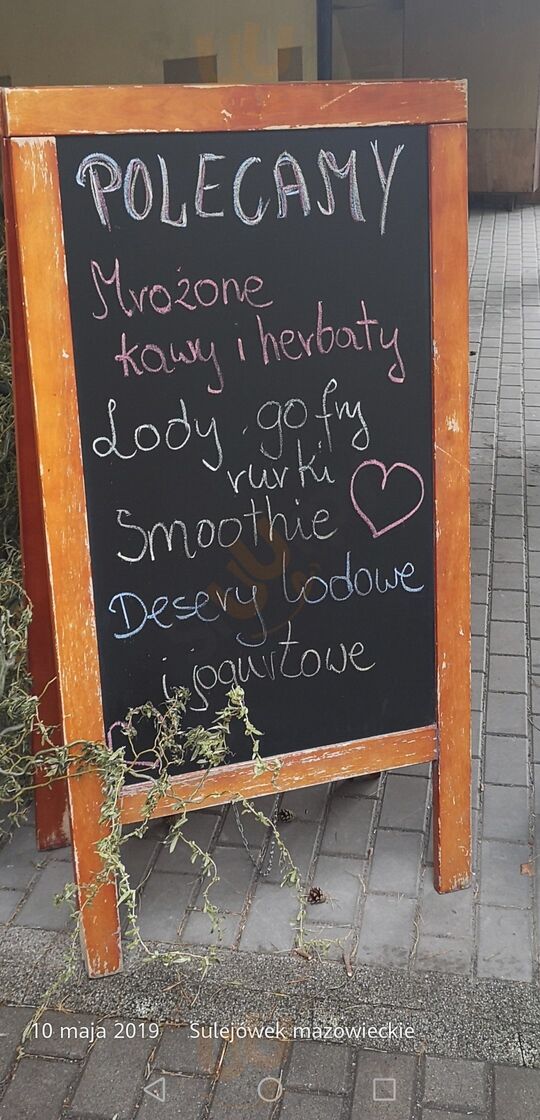 POLECAMY
Mrożone
kawy i herbaty
Lody, gofry
rurki
Smoothie
Desery lodowe
i jogurtowe
10 maja 2019 Sulejówek mazowieckie